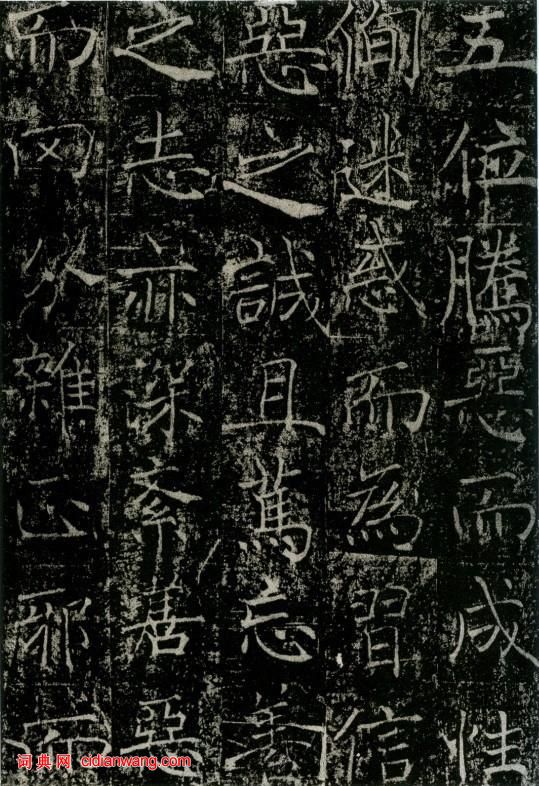 五位騰惡而成性
侚迷惑而為習信
惡之誠且篤忘善
之志亦深紊善惡
而罔分雜正邪而
词典网 cidianwang.com